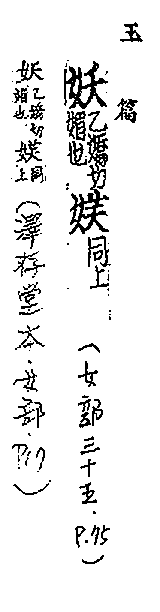 玉篇
妖乙嬌切媚也𡝩同上（女部三十五．P.95）
妖乙嬌切媚也𡝩同上（澤存堂本．女部．P17）